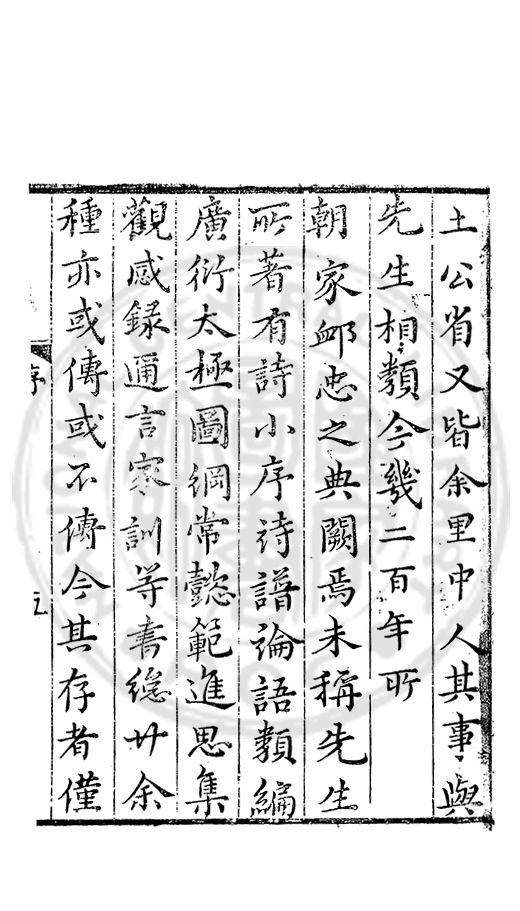 土公省又皆余里中人其事與
先生相類今幾二百年所
朝家卹忠之典闕焉未稱先生
所著有詩小序詩譜論語類編
廣衍太極圖綱常懿範進思集
觀感録通言家訓等書總廿余
種亦或傳或不傳今其存者僅
序
五